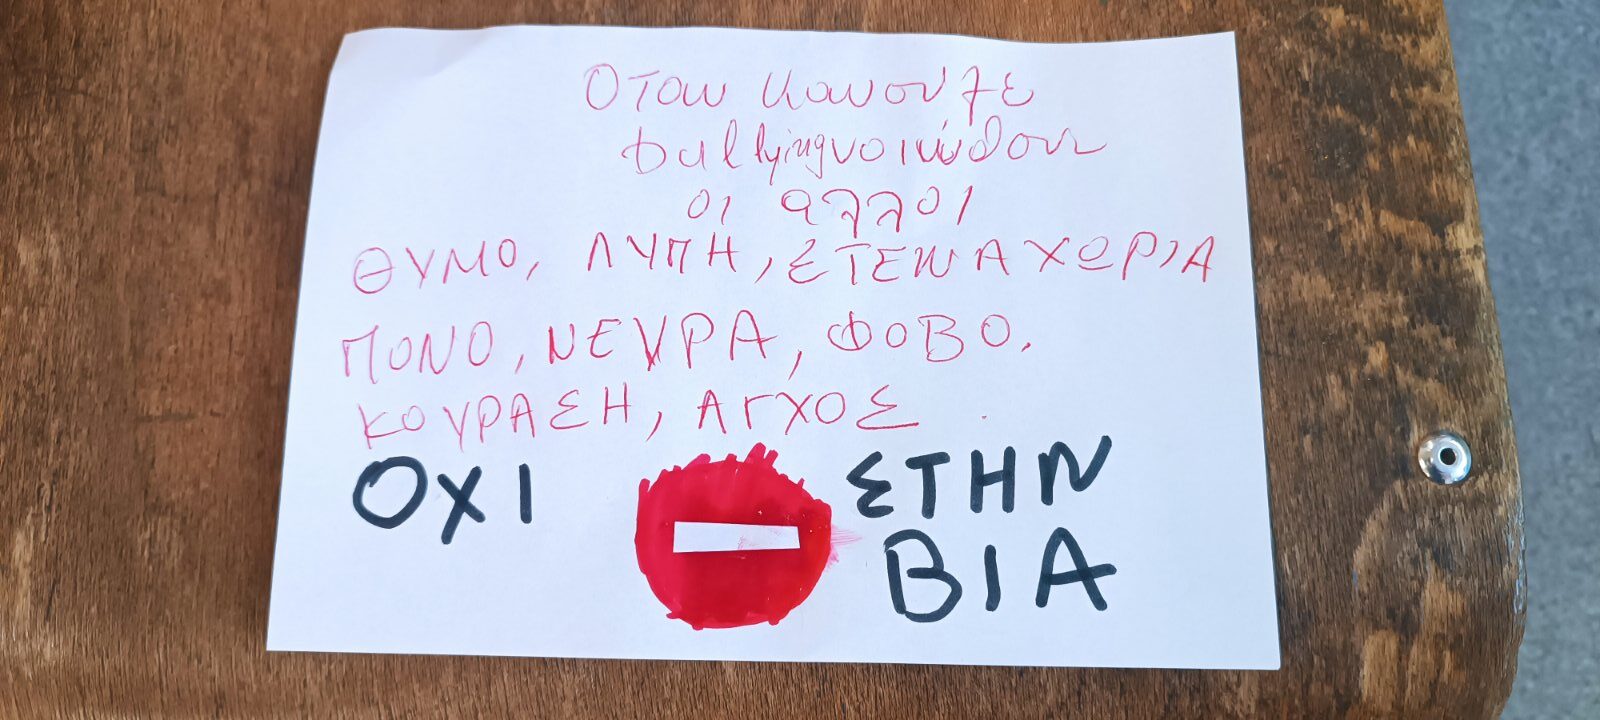 Οταν κανουλε
bullying νοιώθουν
οι αλλοι
ΘΥΜΟ, ΛΥΠΗ, ΣΤΕΝΑΧΩΡΙΑ
ΠΟΝΟ, ΝΕΥΡΑ, ΦΟΒΟ.
ΚΟΥΡΑΣΗ, ΑΓΧΟΣ.
ΟΧΙ ΣΤΗΝ
ΒΙΑ